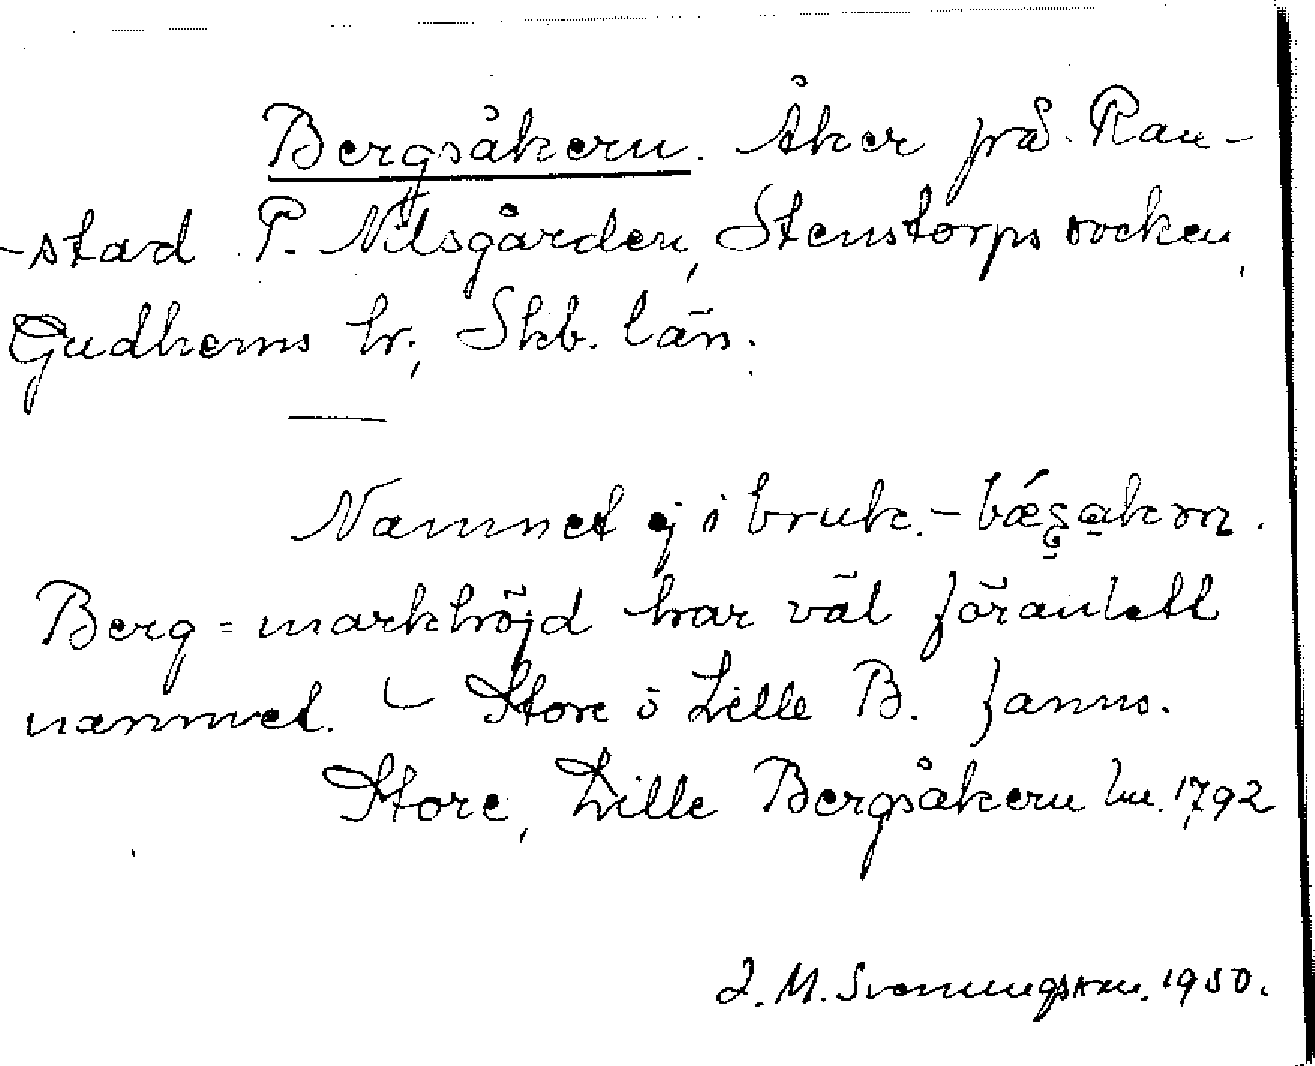 Bergsåkern. Åker på Ran-
-stad P. Nilsgården, Stenstorps socken,
Gudhems hr., Skb. län.
Namnet ej i bruk. -
Berg = markhöjd har väl föranlett
namnet. - Store o Lille B. fanns.
Store, Lille Bergsåkern lm. 1792
J. M. Svenungsson. 1950.